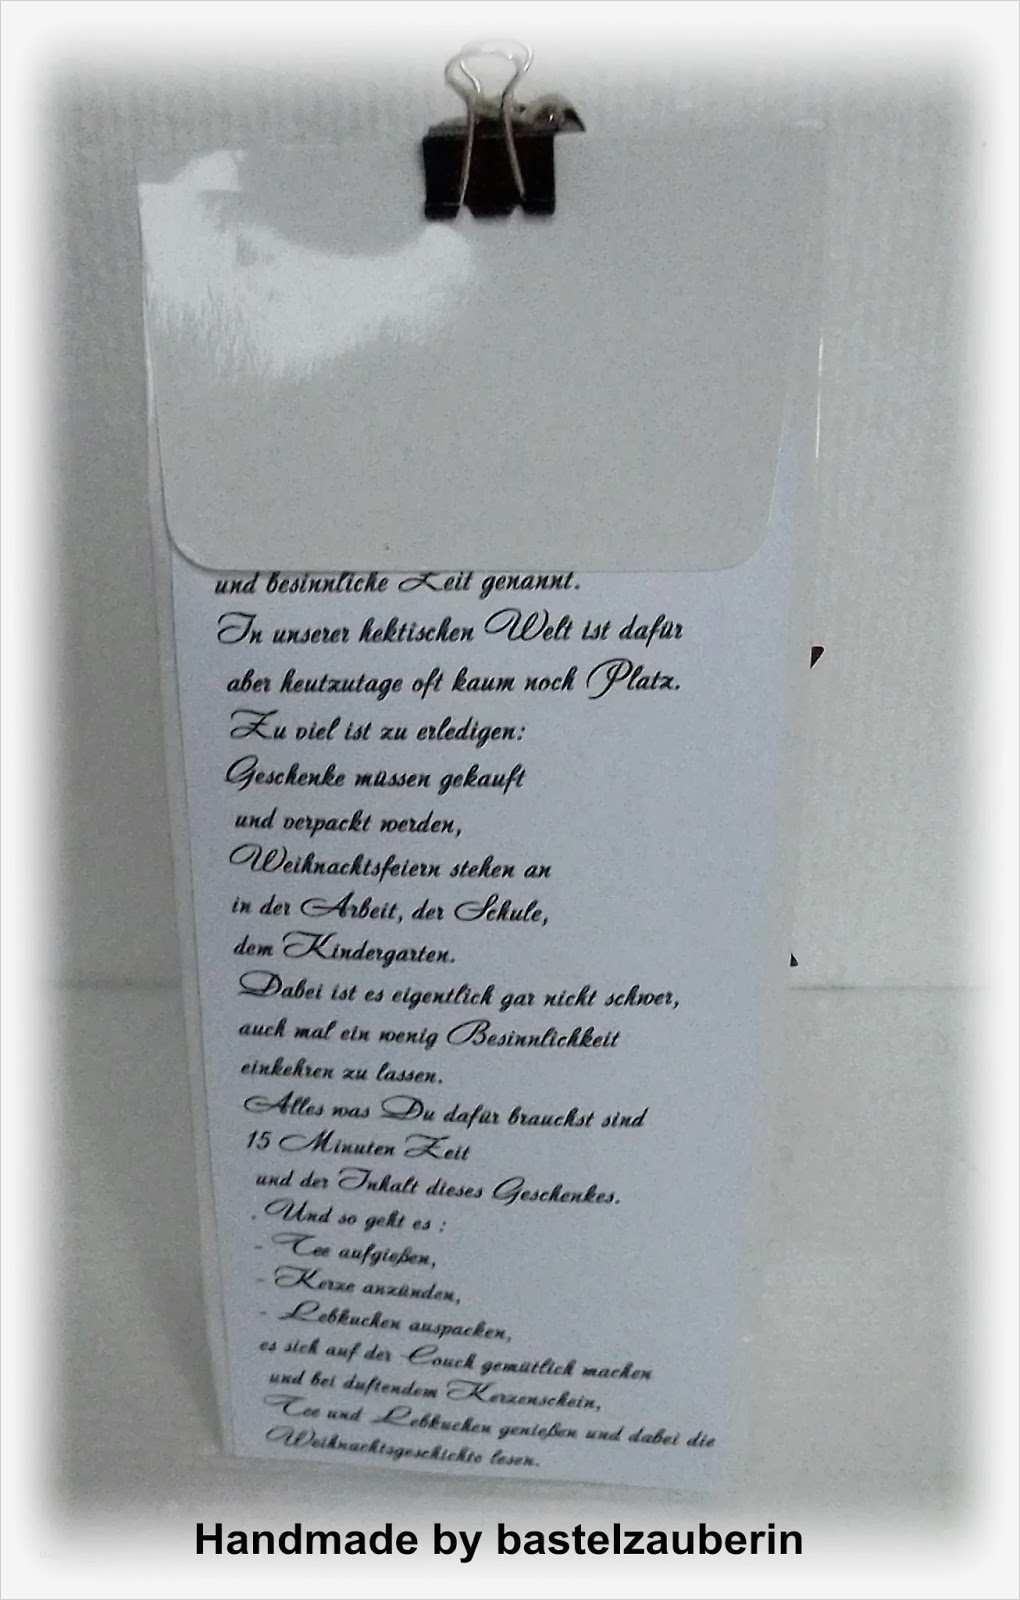 und besinnliche Zeit genannt.
In unserer hektischen Welt ist dafür
aber heutzutage oft kaum noch Platz.
Zu viel ist zu erledigen:
Geschenke müssen gekauft
und verpackt werden,
Weihnachtsfeiern stehen an
in der Arbeit, der Schule,
dem Kindergarten.
Dabei ist es eigentlich gar nicht schwer,
auch mal ein wenig Besinnlichkeit
einkehren zu lassen.
Alles was Du dafür brauchst sind
15 Minuten Zeit
und der Inhalt dieses Geschenkes.
. Und so geht es :
- Tee aufgießen,
- Kerze anzünden,
- Lebkuchen auspacken,
es sich auf der Couch gemütlich machen
und bei duftendem Kerzenschein,
Tee und Lebkuchen genießen und dabei die
Weihnachtsgeschichte lesen.
Handmade by bastelzauberin